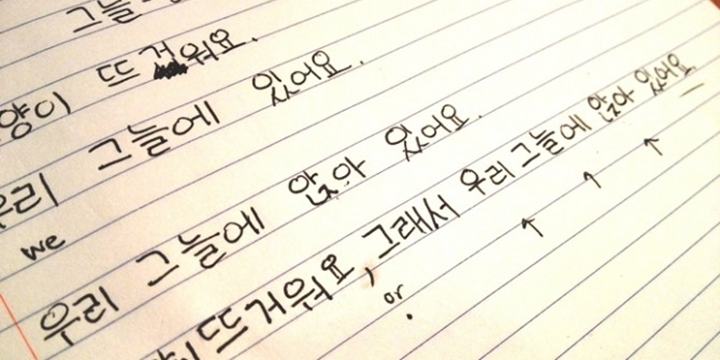 그늘
양이 뜨거워요.
우리 그늘에 있어요.
we
우리 그늘에 앉아 있어요.
뜨거워요, 그래서 우리 그늘에 앉아 있어요
or